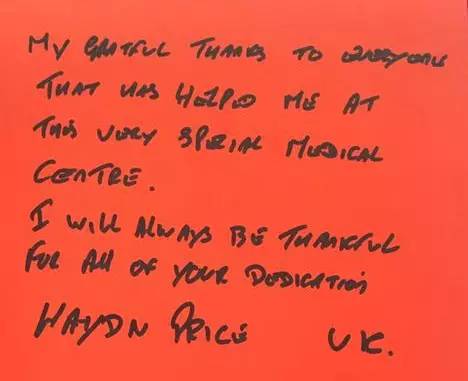 MY GRATFUL THANKS TO EVERYONE
THAT HAS HELPED ME AT
THIS VERY SPECIAL MEDICAL
CENTRE.
I WILL ALWAYS BE THANKFUL
FOR ALL OF YOUR DEDICATION
HAYDN PRICE UK.